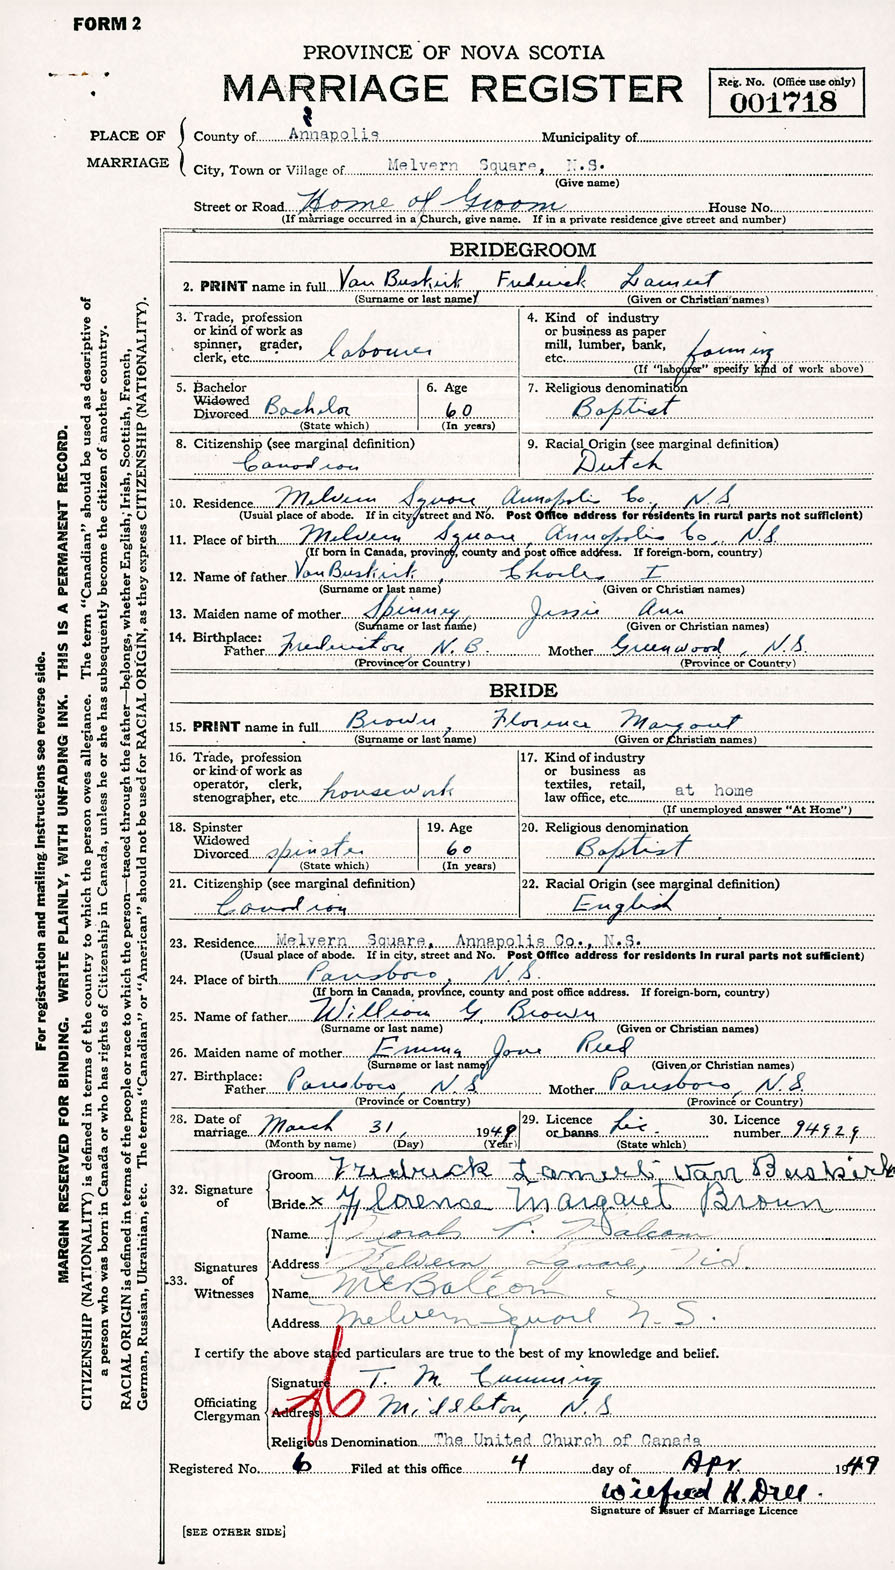 FORM 2
PROVINCE OF NOVA SCOTIA
MARRIAGE REGISTER
Reg. No. (Office use only)
001718
PLACE OF MARRIAGE
County of Annapolis Municipality of
City, Town or Village of Melvern Square, N.S.
(Give name)
Street or Road Home of Groom House No.
(If marriage occurred in a Church, give name. If in a private residence give street and number)
BRIDEGROOM
2. PRINT name in full Van Buskirk Frederick Lamert
(Surname or last name) (Given or Christian names)
3. Trade, profession or kind of work as spinner, grader, clerk, etc. labourer
4. Kind of industry or business as paper mill, lumber, bank, etc. farming
(If "labourer" specify kind of work above)
5. Bachelor Widowed Divorced Bachelor
(State which)
6. Age 60
(In years)
7. Religious denomination Baptist
8. Citizenship (see marginal definition) Canadian
9. Racial Origin (see marginal definition) Dutch
10. Residence Melvern Square Annapolis Co., N.S
(Usual place of abode. If in city, street and No. Post Office address for residents in rural parts not sufficient)
11. Place of birth Melvern Square, Annapolis Co., N.S.
(If born in Canada, province, county and post office address. If foreign-born, country)
12. Name of father Van Buskirk, Charles I
(Surname or last name) (Given or Christian names)
13. Maiden name of mother Spinney, Jessie Ann
(Surname or last name) (Given or Christian names)
14. Birthplace:
Father Fredericton, N.B. Mother Greenwood, N.S.
(Province or Country) (Province or Country)
BRIDE
15. PRINT name in full Brown, Florence Margaret
(Surname or last name) (Given or Christian names)
16. Trade, profession or kind of work as operator, clerk, stenographer, etc. housework
17. Kind of industry or business as textiles, retail, law office, etc. at home
(If unemployed answer "At Home")
18. Spinster Widowed Divorced spinster
(State which)
19. Age 60
(In years)
20. Religious denomination Baptist
21. Citizenship (see marginal definition) Canadian
22. Racial Origin (see marginal definition) English
23. Residence Melvern Square, Annapolis Co., N.S.
(Usual place of abode. If in city, street and No. Post Office address for residents in rural parts not sufficient)
24. Place of birth Parrsboro, N.S.
(If born in Canada, province, county and post office address. If foreign-born, country)
25. Name of father William G. Brown
(Surname or last name) (Given or Christian names)
26. Maiden name of mother Emma Jane Reed
(Surname or last name) (Given or Christian names)
27. Birthplace:
Father Parrsboro, N.S Mother Parrsboro, N.S.
(Province or Country) (Province or Country)
28. Date of marriage March 31, 1949
(Month by name) (Day) (Year)
29. Licence or banns Lic.
(State which)
30. Licence number 94929
32. Signature of
Groom Fredrick Lamert Van Buskirk
Bride x Florence Margaret Brown
33. Signatures of Witnesses
Name P.
Address Melvern Square,
Name
Address Melvern Square N.S.
I certify the above stated particulars are true to the best of my knowledge and belief.
Officiating Clergyman
Signature T. M. Cumming
Address Middleton, N.S.
Religious Denomination The United Church of Canada
Registered No. 6 Filed at this office 4 day of Apr. 1949
Wilfred H.
Signature of Issuer of Marriage Licence
[SEE OTHER SIDE]
For registration and mailing Instructions see reverse side.
MARGIN RESERVED FOR BINDING. WRITE PLAINLY, WITH UNFADING INK. THIS IS A PERMANENT RECORD.
CITIZENSHIP (NATIONALITY) is defined in terms of the country to which the person owes allegiance. The term "Canadian" should be used as descriptive of
a person who was born in Canada or who has rights of Citizenship in Canada, unless he or she has subsequently become the citizen of another country.
RACIAL ORIGIN is defined in terms of the people or race to which the person—traced through the father—belongs, whether English, Irish, Scottish, French,
German, Russian, Ukrainian, etc. The terms "Canadian" or "American" should not be used for RACIAL ORIGIN, as they express CITIZENSHIP (NATIONALITY).